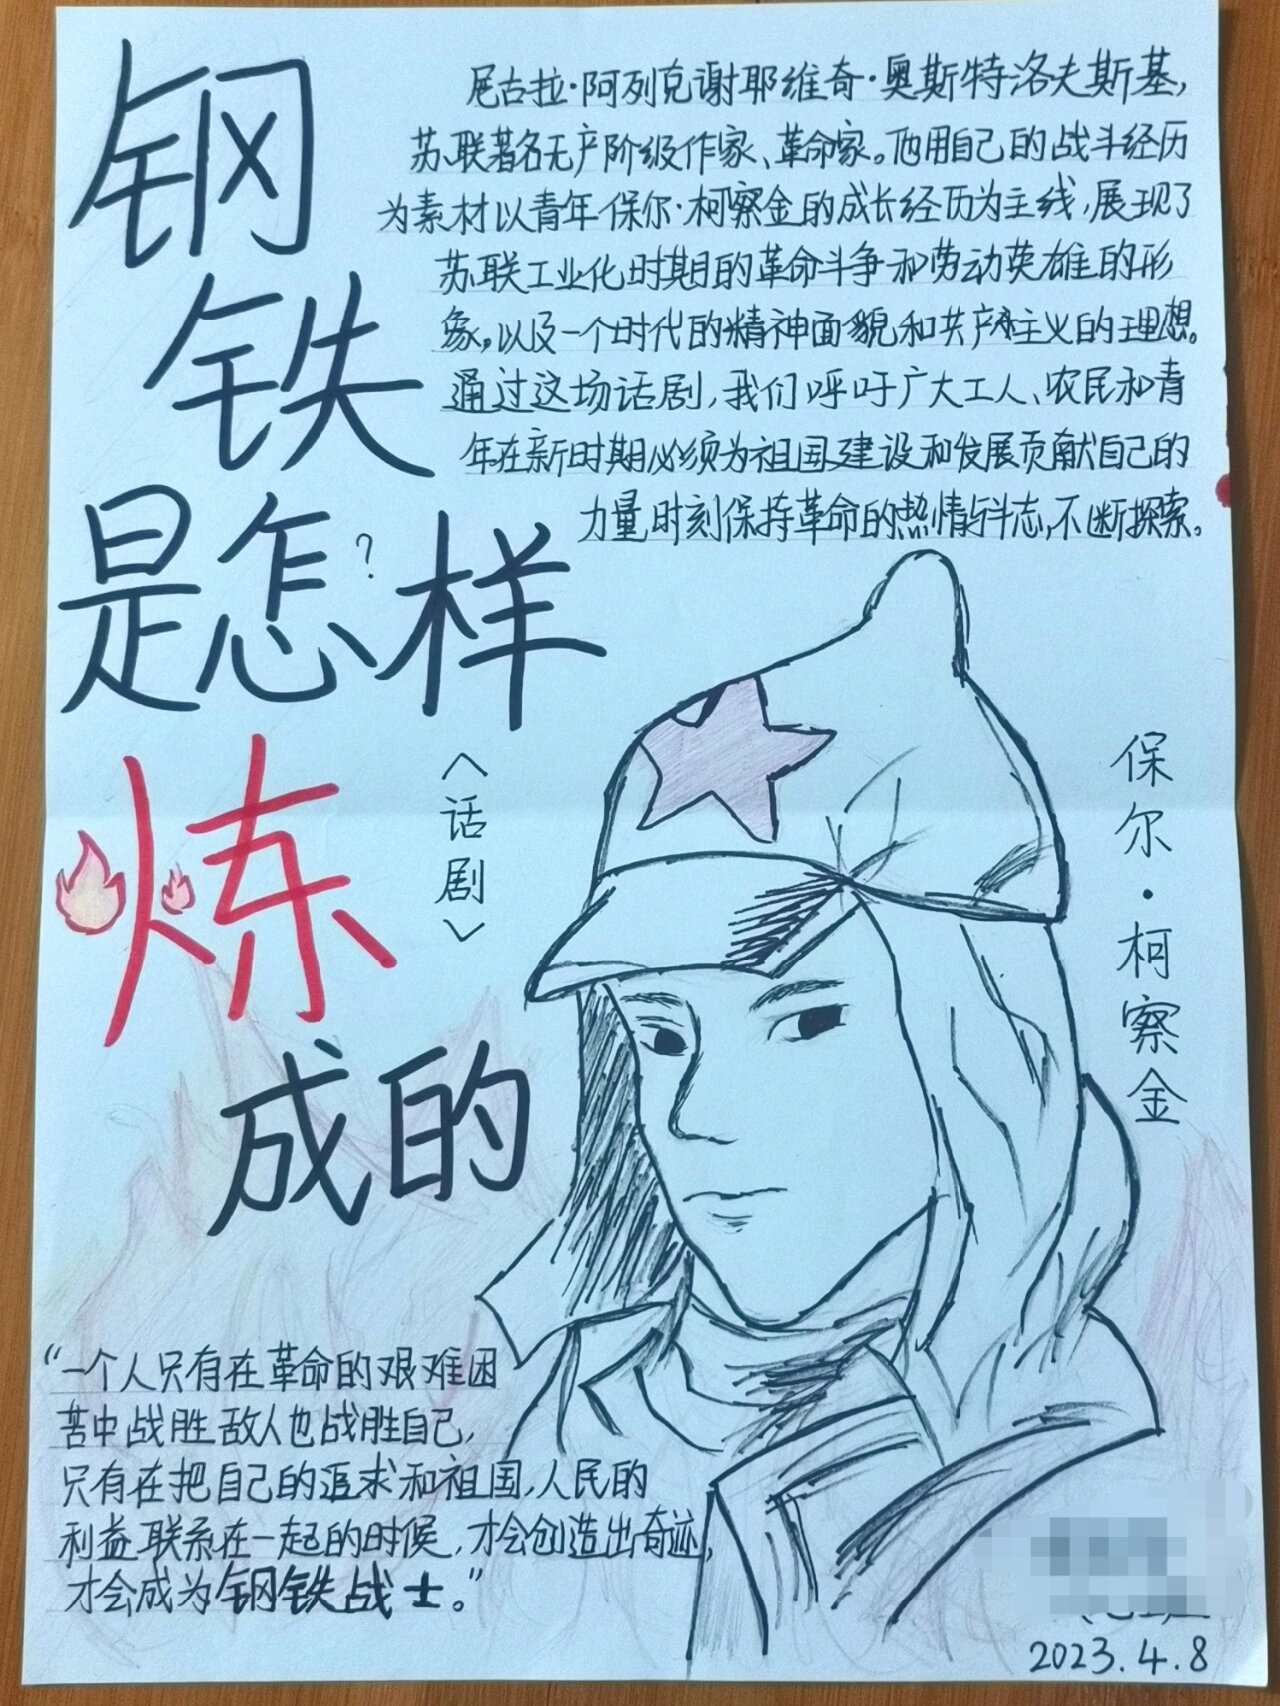 钢
铁
是怎?样
炼
成的
<话剧>
尼古拉·阿列克谢耶维奇·奥斯特洛夫斯基,
苏联著名无产阶级作家、革命家。他用自己的战斗经历
为素材以青年保尔·柯察金的成长经历为主线,展现了
苏联工业化时期的革命斗争和劳动英雄的形
象,以及一个时代的精神面貌和共产主义的理想。
通过这场话剧,我们呼吁广大工人、农民和青
年在新时期必须为祖国建设和发展贡献自己的
力量时刻保持革命的热情与斗志,不断探索。
保尔·柯察金
“一个人只有在革命的艰难困
苦中战胜敌人也战胜自己,
只有在把自己的追求和祖国,人民的
利益联系在一起的时候,才会创造出奇迹,
才会成为钢铁战士。”
2023.4.8